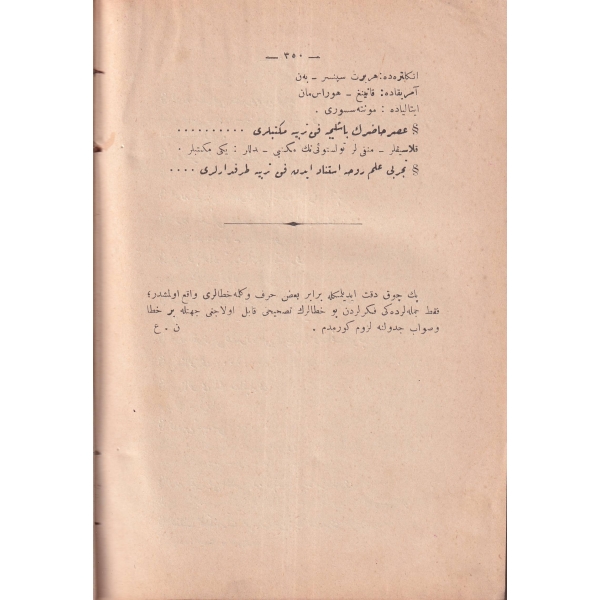 — ٣٥٠ —
انكلتره‌ده: هربرت سپنسر ـ به‌ن
آمريقاده: قانينغ ـ هوراس‌مان
ايتالياده : مونته‌سـورى .
§ عصر حاضرك باشليجه فنى تربيه مكتبلرى . . . . . . . . . .
قلاسيقلر ـ منفى لر تولستوئى‌نك مكتبى ـ بدللر : يكى مكتبلر .
§ تجربى علم روحه استناد ايدن فنى تربيه طرفدارلرى . . . .
پك چوق دقت ايديلمكله برابر بعض حرف وكله خطالرى واقع اولمشدر؛
فقط جمله‌لرده‌كى فكرلردن بو خطالرك تصحيحى قابل اولاجغى جهتله بر خطا
وسواب جدولنه لزوم كورمدم . ن . ع